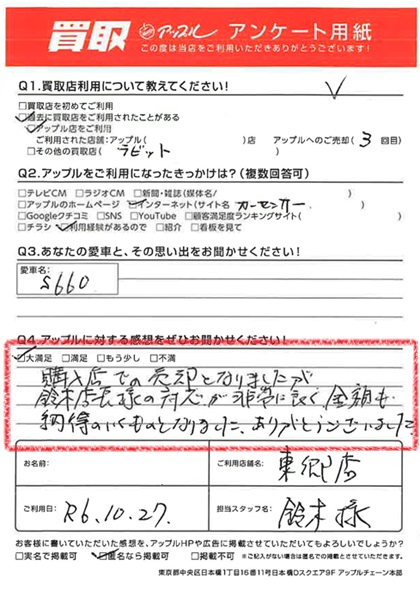 買取 アップル アンケート用紙
この度は当店をご利用いただきありがとうございます!
Q1.買取店利用について教えてください!
□買取店を初めてご利用
☑過去に買取店をご利用されたことがある
☑アップル店をご利用
ご利用された店舗:アップル( )店 アップルへのご売却( 3 回目)
□その他の買取店( ラビット )
Q2.アップルをご利用になったきっかけは?(複数回答可)
□テレビCM □ラジオCM □新聞・雑誌(媒体名/ )
□アップルのホームページ ☑インターネット(サイト名 カーセンサー )
□Googleクチコミ □SNS □YouTube □顧客満足度ランキングサイト( )
□チラシ ☑利用経験があるので □紹介 □看板を見て
Q3.あなたの愛車と、その思い出をお聞かせください!
愛車名:
S660
Q4.アップルに対する感想をぜひお聞かせください!
☑大満足 □満足 □もう少し □不満
購入店での売却となりましたが
鈴木店長様の対応が非常に良く金額も
納得のいくものとなりました、ありがとうございました
お名前: ご利用店舗名: 東郷店
ご利用日: R6.10.27. 担当スタッフ名: 鈴木様
お客様に書いていただいた感想を、アップルHPや広告に掲載させていただいてもよろしいでしょうか?
□実名で掲載可 ☑匿名なら掲載可 □掲載不可 ※ご記入がない場合は匿名での掲載とさせていただきます。
東京都中央区日本橋1丁目16番11号日本橋Dスクエア9F アップルチェーン本部